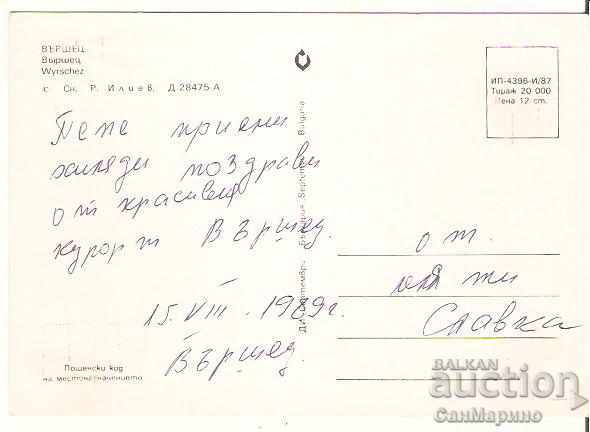 ВЪРШЕЦ
Вършец
Wyrschez
с. Сн. Р. Илиев. Д-28475-А
ИП-4396-И/87
Тираж 20 000
Цена 12 ст.
ДИ „Септември“ България Septemvri Bulgaria
Пепе приеми
хиляди поздрави
от красивия
курорт Вършец.
15. VIII. 1989г.
Вършец.
от
ти
Славка
Пощенски код
на местоназначението
BALKAN
auction
СанМарино